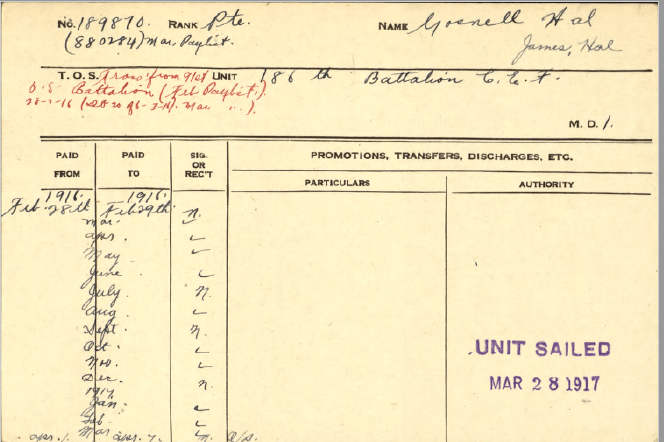 No. 189870. RANK Pte. NAME Gosnell Hal
(880284) Mar. Paylist. James, Hal
T. O. S. Trans. from 91st UNIT 186 th Battalion C.E.F.
O.S. Battalion (Feb Paylist.)
28-2-16 Mar " ).
M. D. 1.
PAID FROM PAID TO SIG. OR REC'T PROMOTIONS, TRANSFERS, DISCHARGES, ETC.
PARTICULARS AUTHORITY
1916. 1916.
Feb. 28th Feb 29th n.
Mar.
Apr.
May
June
July n.
Aug
Sept n.
Oct
Nov.
Dec. n.
1917
Jan.
Feb.
Mar
apr. 1. apr. 7. n.
UNIT SAILED
MAR 28 1917